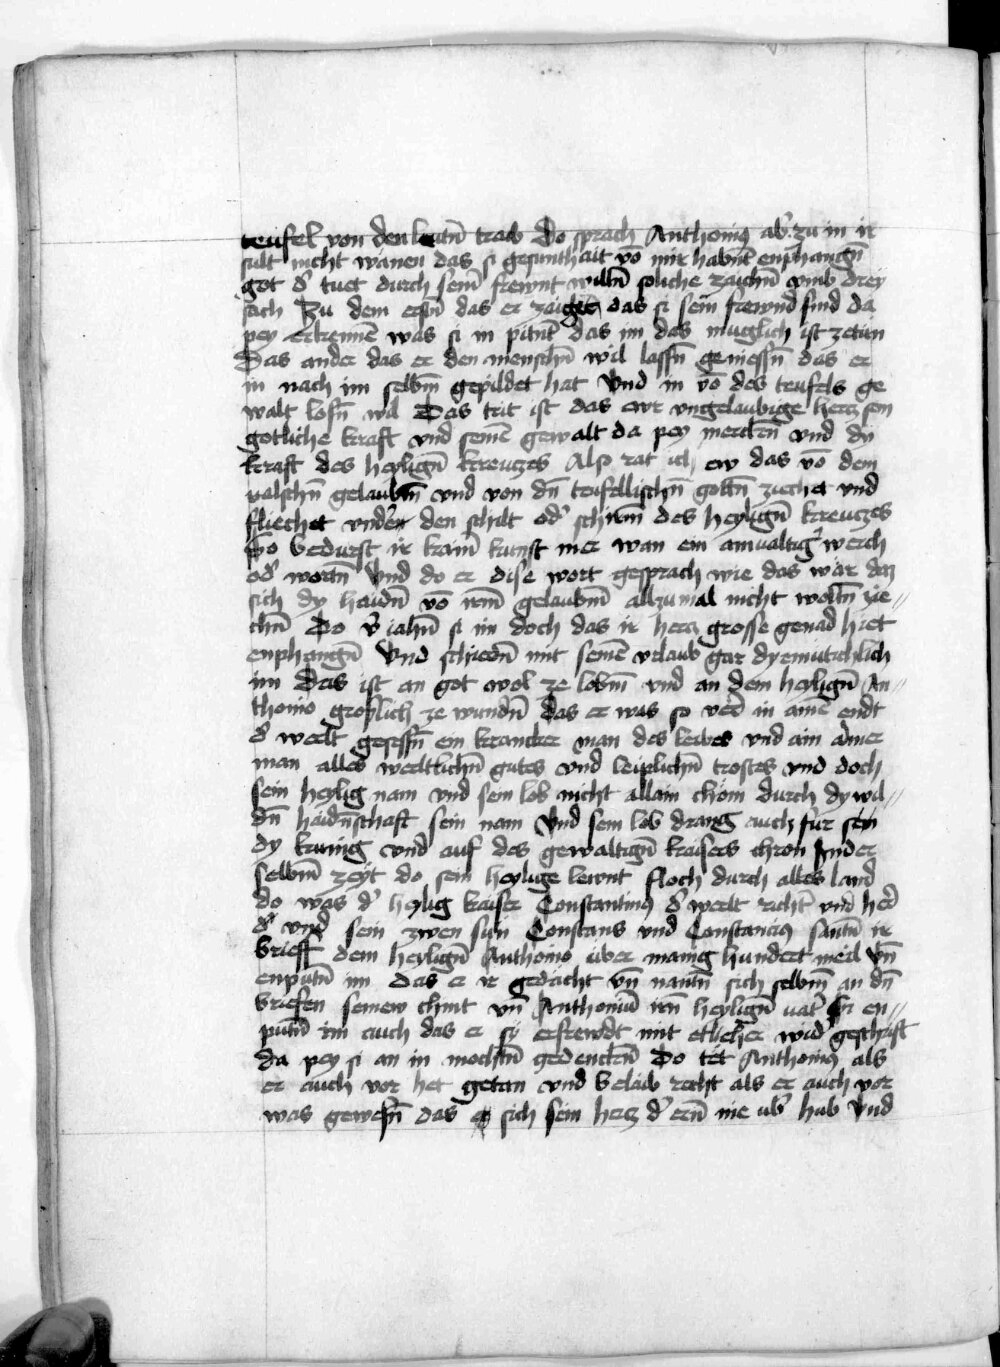 teufel von den leutn̄ traib Do sprach Anthonius ab̾ zu in ir
sult nicht wänen das si gesunthait vō mir habn̄t enphangn̄
got d̾ tuet durch sein̄ frewnt willn̄ soliche zaichn̄ vmb drey
sach Zu dem erstn̄ das er zaige das si sein frewnd sind da
pey erkennē was si in pitn̄t das im das muglich ist zetūn
Das ander das er den menschn̄ wil lassn̄ geniessn̄ das er
in nach im selbm̄ gepildet hat Vnd in vō des teufels ge
walt losn̄ wil Das trit ist das ewr vngelaubige hercz sein
gotliche kraft vnd seinē gewalt da pey merckn̄ vnd dy
kraft des heylign̄ kreuczes Also rat ich ew das vō dem
valschn̄ gelaubm̄ vnd von dn̄ teufellischn̄ gottn̄ ziechet vnd
fliechet vnder den schilt od̾ schirm̄ des heylign̄ kreuczes
So bedurft ir kain̄ kunst mer wan ein ainualtig̾ werch
od̾ wortn̄ Vnd do er dise wort gesprach wie das wär daz
sich dy haidn̄ vō irm̄ gelaubm̄ allzumal nicht woltn̄ zie⸗
chn̄ Do v̾iahn̄ si im doch das ir hercz grosse genad hiet
enphangn̄ Vnd schiedn̄ mit seinē vrlaub gar dyemutichlich
im Das ist an got wol ze lobm̄ vnd an dem heylign̄ An⸗
thonio groslich ze wundn̄ das er was so verr̄ in ainē endt
d̾ werlt gesessn̄ ein krancker man des leibes vnd ain armer
man alles werltlichn̄ gutes vnd leiplichn̄ trostes vnd doch
sein heylig nam vnd sein lob nicht allain chom durch dy wil⸗
dn̄ haidn̄schaft sein nam Vnd sein lob drang auch fur sein
dy kunig vnd auf des gewaltign̄ kaisers thron In der
selbm̄ zeyt do sein heylige lewnt floch durch alles land
do was d̾ heylig kaiser Constantinus d̾ werlt richt̾ vnd her̄
d̾ vnd sein zwen sun Constans vnd Constancius santn̄ ir
brieff dem heylign̄ Anthonio uber manig hundert meil vn̄
enputn̄ im das er ir gedacht vn̄ nantn̄ sich selbm̄ an dn̄
briefen seinew chint vn̄ Anthoniū irn̄ heylign̄ uat̾ si en⸗
putn̄ im auch das er sy erfrewdt mit etlicher wid̾ geschrift
da pey si an in mochtn̄ gedenckn̄ Do tet Anthonius als
er auch vor het getan vnd belaib recht als er auch vor
was gewesn̄ das sich sein hercz d̾ ern̄ nie ub̾ hub Vnd